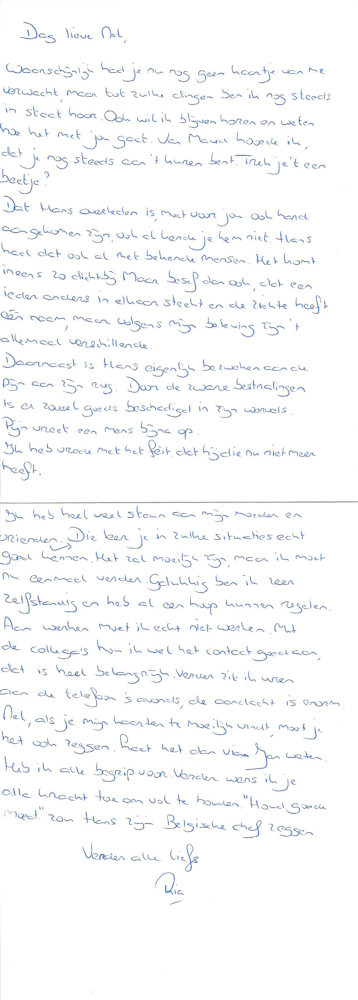 Dag lieve Nel,
Waarschijnlijk had je nu nog geen kaartje van me
verwacht, maar tot zulke dingen ben ik nog steeds
in staat hoor. Ook wil ik blijven horen en weten
hoe het met jou gaat. Van Maud hoorde ik,
dat je nog steeds aan 't kuren bent. Trek je 't een
beetje?
Dat Hans overleden is, moet voor jou ook hard
aangekomen zijn, ook al kende je hem niet. Hans
had dat ook al met bekende mensen. Het komt
ineens zo dichtbij. Maar besef dan ook, dat een
ieder anders in elkaar steekt en de ziekte heeft
één naam, maar volgens mijn beleving zijn 't
allemaal verschillende.
Daarnaast is Hans eigenlijk bezweken aan de
pijn aan zijn rug. Door de zware bestralingen
is er zoveel goeds beschadigd in zijn wervels.
Pijn vreet een mens bijna op.
Ik heb vrede met het feit dat hij die nu niet meer
heeft.
Ik heb heel veel steun aan mijn moeder en
vrienden. Die leer je in zulke situaties echt
goed kennen. Het zal moeilijk zijn, maar ik moet
nu eenmaal verder. Gelukkig ben ik zeer
zelfstandig en heb al een hoop kunnen regelen.
Aan werken moet ik echt niet werken. Met
de collega's hou ik wel het contact goed aan,
dat is heel belangrijk. Verder zit ik uren
aan de telefoon 's avonds, de aandacht is enorm.
Nel, als je mijn kaarten te moeilijk vindt, moet je
het ook zeggen. Laat het dan via Jan weten.
Heb ik alle begrip voor. Verder wens ik je
alle kracht toe om vol te houden. "Houd goede
moed" zou Hans zijn Belgische chef zeggen.
Verder alle liefs
Ria